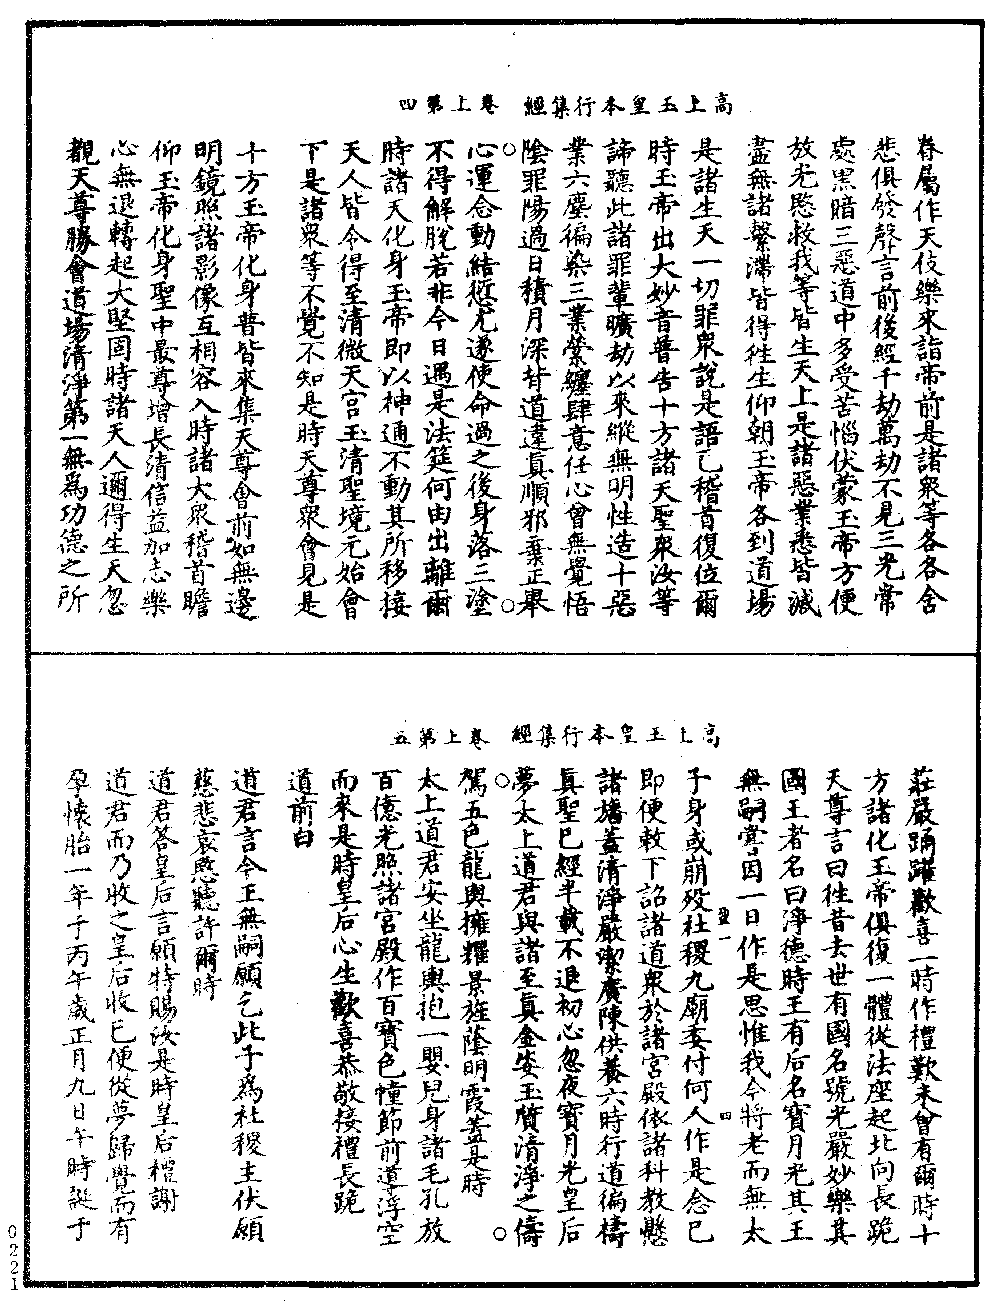 高上玉皇本行集經　卷上第四
眷屬作天伎樂來詣帝前是諸眾等各各舍
悲俱發聲言前後經千劫萬劫不見三光常
處黑暗三惡道中多受苦惱伏蒙玉帝方便
放光愍救我等皆生天上是諸惡業悉皆滅
盡無諸繫滯皆得徃生仰朝玉帝各到道場
是諸生天一切罪眾說是語已稽首復位爾
時玉帝出大妙音普告十方諸天聖眾汝等
諦聽此諸罪輩曠劫以來縱無明性造十惡
業六塵徧染三業縈纏肆意任心曾無覺悟
陰罪陽過日積月深背道違真順邪棄正舉
心運念動結愆尤遂使命過之後身落三塗
不得解脫若非今日遇是法筵何由出離爾
時諸天化身玉帝即以神通不動其所移接
天人皆令得至清微天宮玉清聖境元始會
下是諸眾等不覺不知是時天尊眾會見是
十方玉帝化身普皆來集天尊會前如無邊
明鏡照諸影像互相容入時諸大眾稽首瞻
仰玉帝化身聖中最尊增長清信益加志樂
心無退轉起大堅固時諸天人邇得生天忽
觀天尊勝會道場清淨第一無為功德之所
高上玉皇本行集經　卷上第五
莊嚴踊躍歡喜一時作禮歎未曾有爾時十
方諸化玉帝俱復一體從法座起北向長跪
天尊言曰徃昔去世有國名號光嚴妙樂其
國王者名曰淨德時王有后名寶月光其王
無嗣嘗因一日作是思惟我今將老而無太
子身或崩歿社稷九廟委付何人作是念已
即便敕下詔諸道眾於諸宮殿依諸科教懸
諸旛蓋清淨嚴潔廣陳供養六時行道徧禱
真聖已經半載不退初心忽夜寶月光皇后
夢太上道君與諸至真金姿玉質清淨之儔
駕五色龍輿擁耀景旌蔭明霞蓋是時
太上道君安坐龍輿抱一嬰兒身諸毛孔放
百億光照諸宮殿作百寶色幢節前導浮空
而來是時皇后心生歡喜恭敬接禮長跪
道前白
道君言今王無嗣願乞此子為社稷主伏願
慈悲哀愍聽許爾時
道君答皇后言願特賜汝是時皇后禮謝
道君而乃收之皇后收已便從夢歸覺而有
孕懷胎一年于丙午歲正月九日午時誕于
0221